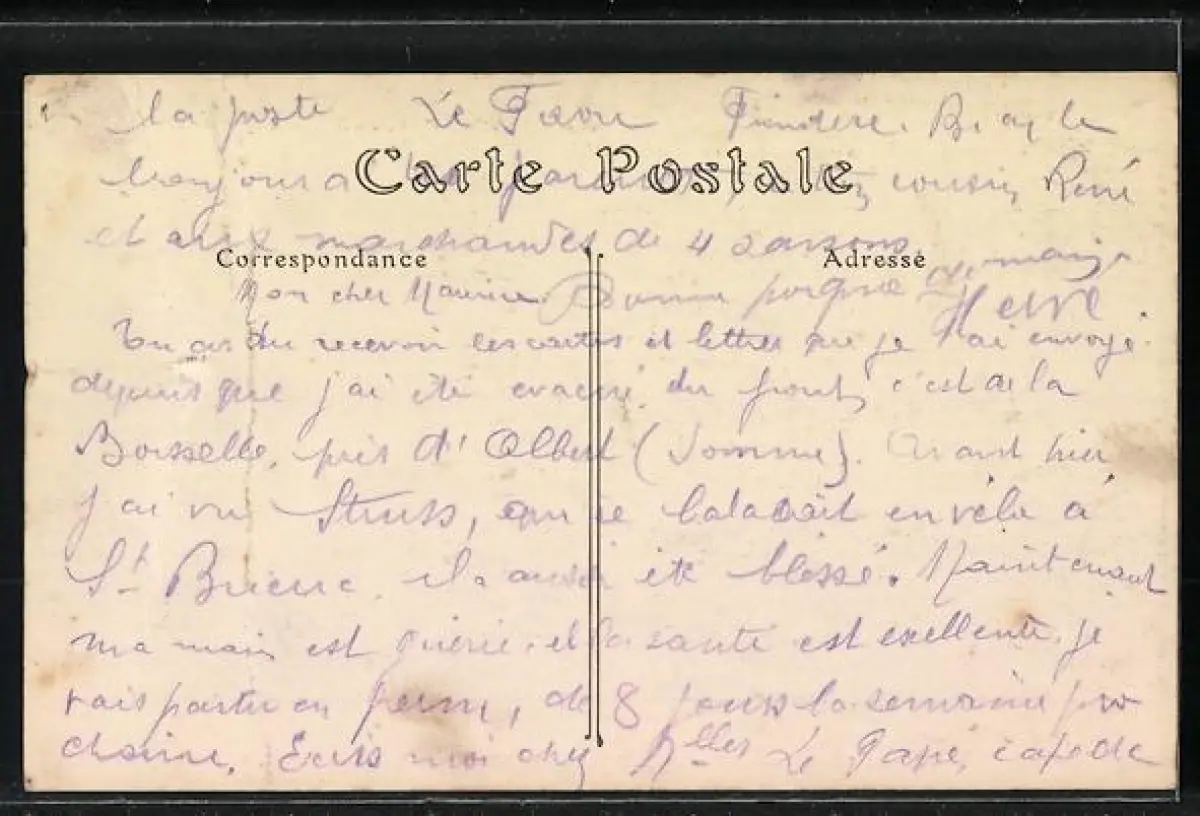 la poste Le Faou Finistère. B. à la
bonjour à tes parents, cousin René
et aux marchandes de 4 saisons.
Carte Postale
Correspondance
Adresse
Mon cher Maurice. Bonne poigne de main
Hervé
Tu as du recevoir les cartes et lettres que je t'ai envoyé
depuis que j'ai été evacué du front, c'est à la
Boisselle, près d'Albert (Somme). Avant hier
j'ai vu Struss, qui se baladait en vélo à
St Brieuc, il a aussi été blessé. Maintenant
ma main est guérie, et la santé est exellente. je
vais partir en perm, de 8 jours la semaine pro
chaine. Ecris moi chez Melles Le Pape, café de